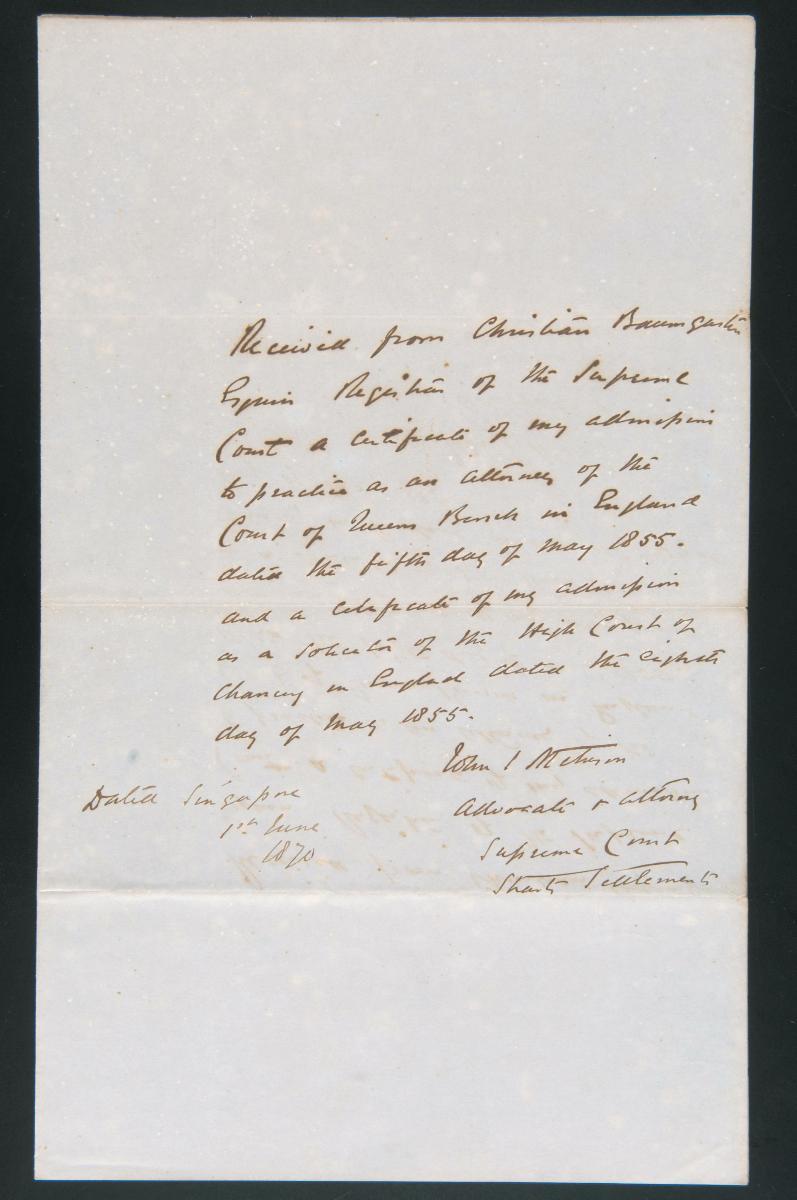 Received from Christian Baumgarten
Esquire Registrar of the Supreme
Court a certificate of my admission
to practice as an attorney of the
Court of Queens Bench in England
dated the fifth day of May 1855.
and a certificate of my admission
as a Solicitor of the High Court of
Chancery in England dated the eighth
day of May 1855.
John
Advocate & Attorney
Supreme Court
Straits Settlements
Dated Singapore
1st June
1870